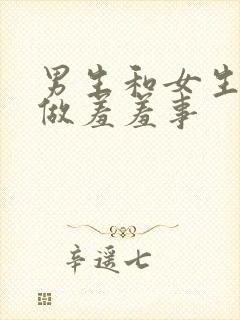 男生和女生
做羞羞事
辛遥七